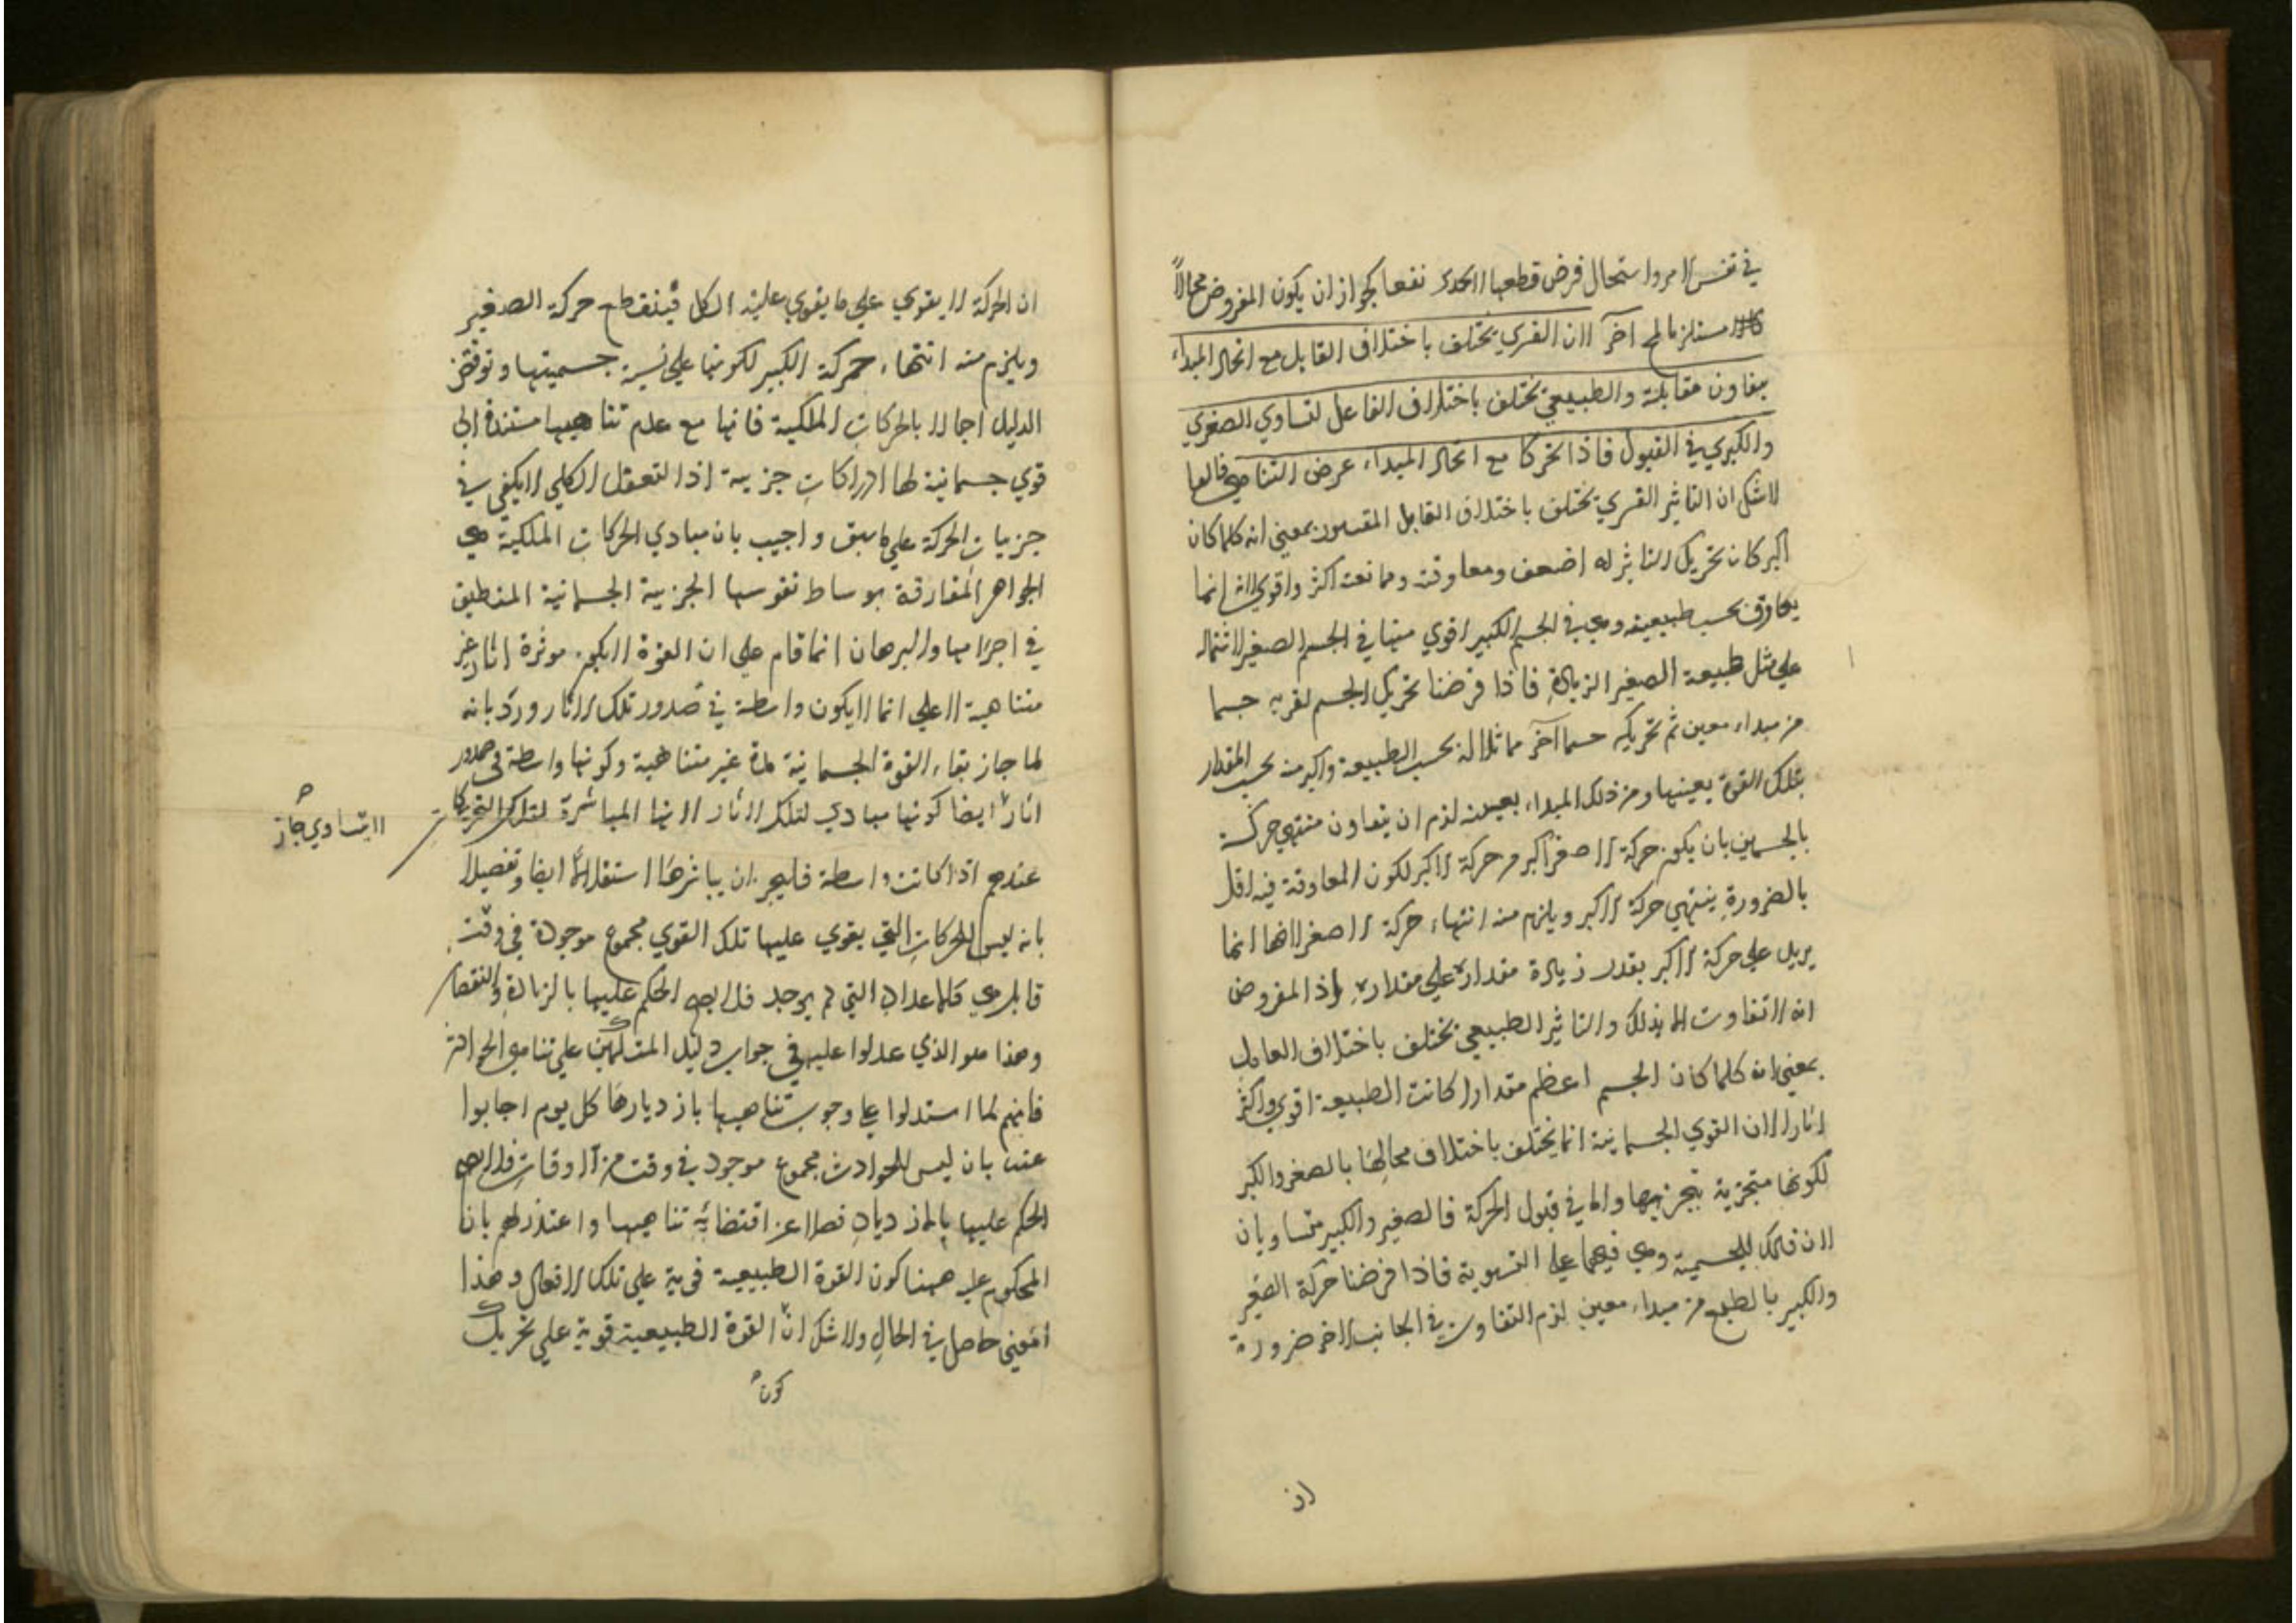 في نفس الامر واستحال فرض قطعها نفعا لجواز ان يكون المفروض محالا
مستلزما لمح آخر لان القسري يختلف باختلاف القابل مع اتحاد المبداء
مقابله والطبيعي يختلف باختلاف الفاعل لتساوي الصغري
والكبري في القبول فاذا تحركا مع اتحاد المبداء عرض التناهي
لا شك ان التاثير القسري يختلف باختلاف القابل المقسور بمعنى انه كلما كان
اكبر كان تحريك له اضعف ومعاوقته وممانعته اكثر واقوي لانه انما
يعاوق بحسب طبيعته وهي في الجسم الكبير اقوي منها في الجسم الصغير لاشتماله
علي مثل طبيعة الصغير الزيادة فاذا فرضنا تحريك الجسم جسما
من مبداء معين ثم تحريكه جسما آخر مماثلا له بحسب الطبيعة واكبر منه بحسب المقدار
بتلك القوة بعينها ومن ذلك المبداء بعينه لزم ان يتفاوت منتهي حركة
بالجسمين بان يكون حركة الاصغر اكبر من حركة الاكبر لكون المعاوقة فيه اقل
بالضرورة ينتهي حركة الاكبر ويلزم منه انتهاء حركة الاصغر لانها انما
يزيد علي حركة الاكبر بقدر زيادة مقداره علي مقداره اذ المفروض
انه لا تفاوت الا بذلك والتاثير الطبيعي يختلف باختلاف
بمعنى انه كلما كان الجسم اعظم مقدارا كانت الطبيعة اقوي واكثر
اثارا لان القوي الجسمانية انما يختلف باختلاف محالها بالصغر والكبر
لكونها متجزية بتجزيها واما في قبول الحركة فالصغير والكبير متساويان
لان ذلك للجسمية وهي فيهما علي التسوية فاذا فرضنا حركة الصغير
والكبير بالطبع من مبداء معين لزم التفاوت في الجانب الاخر ضرورة
اذ
ان الحركة لا يقوي علي ما يقوي عليه الكل فينقطع حركة الصغير
ويلزم منه انتهاء حركة الكبير لكونها علي نسبة جسميتها ونوقض
الدليل اجمالا بالحركات الفلكية فانها مع عدم تناهيها مستندة الي
قوي جسمانية لها ادراكات جزيية اذ التعقل الكلي لا يكفي في
جزييات الحركة علي ما سبق واجيب بان مبادي الحركات الفلكية هي
الجواهر المفارقة بوساط نفوسها الجزيية الجسمانية المنطبق
في اجرامها والبرهان انما قام علي ان القوة لا يكون موثرة اثارا غير
متناهية لا علي انها لا يكون واسطة في صدور تلك الاثار ورد بانه
لما جاز بقاء القوة الجسمانية مدة غير متناهية وكونها واسطة في صدور
اثار ايضا كونها مبادي لتلك الاثار لانها المباشرة لتلك التحريكات
لا يتساوي جاز
عندهم اذا كانت واسطة فليجز ان يباشرها استقلالا ايضا وتفصيلا
بانه ليس للحركات التي يقوي عليها تلك القوي مجموع موجودة في وقت
التي لم يوجد فلا يصح الحكم عليها بالزيادة والنقصان
وهذا هو الذي عدلوا عليه في جواب دليل المتكلمين علي تناهي الحوادث
فانهم لما استدلوا علي وجوب تناهيها بازديارها كل يوم اجابوا
عنه بان ليس للحوادث مجموع موجود في وقت من الاوقات فلا يصح
الحكم عليها بالازدياد فضلا عن اقتضائه تناهيها واعتذر لهم بان
المحكوم عليه ههنا كون القوة الطبيعية قوية علي تلك الافعال وهذا
المعنى حاصل في الحال ولا شك ان القوة الطبيعية قوية علي تحريك
كون